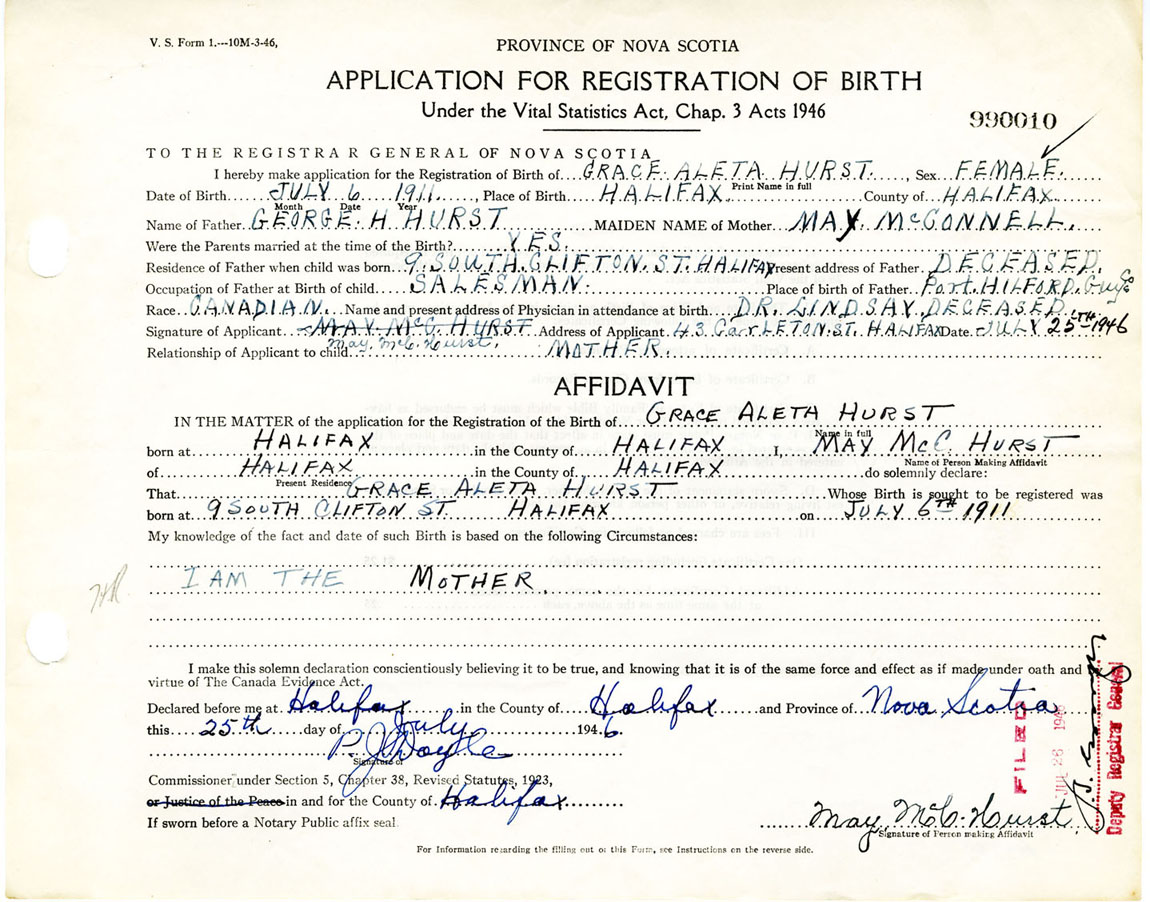 V. S. Form 1.---10M-3-46,
PROVINCE OF NOVA SCOTIA
APPLICATION FOR REGISTRATION OF BIRTH
Under the Vital Statistics Act, Chap. 3 Acts 1946
990010
TO THE REGISTRAR GENERAL OF NOVA SCOTIA
I hereby make application for the Registration of Birth of GRACE ALETA HURST, Sex FEMALE.
Print Name in full
Date of Birth JULY 6 1911, Place of Birth HALIFAX County of HALIFAX
Month Date Year
Name of Father GEORGE H HURST MAIDEN NAME of Mother MAY McCONNELL.
Were the Parents married at the time of the Birth? YES.
Residence of Father when child was born 9 SOUTH CLIFTON ST. HALIFAX Present address of Father DECEASED.
Occupation of Father at Birth of child SALESMAN Place of birth of Father Port HILFORD. Guy. Co
Race CANADIAN Name and present address of Physician in attendance at birth DR. LINDSAY. DECEASED.
Signature of Applicant MAY McC HURST Address of Applicant 43 CarrLETON ST. HALIFAX Date JULY 25TH 1946
May McC Hurst.
Relationship of Applicant to child MOTHER.
AFFIDAVIT
IN THE MATTER of the application for the Registration of the Birth of GRACE ALETA HURST
Name in full
born at HALIFAX in the County of HALIFAX I, MAY McC. HURST
Name of Person Making Affidavit
of HALIFAX in the County of HALIFAX do solemnly declare:
Present Residence
That GRACE ALETA HURST Whose Birth is sought to be registered was
born at 9 SOUTH CLIFTON ST. HALIFAX on JULY 6TH 1911
My knowledge of the fact and date of such Birth is based on the following Circumstances:
I AM THE MOTHER.
I make this solemn declaration conscientiously believing it to be true, and knowing that it is of the same force and effect as if made under oath and by
virtue of The Canada Evidence Act.
Declared before me at Halifax in the County of Halifax and Province of Nova Scotia
this 25th day of July 1946.
P. J. Doyle
Signature of
Commissioner under Section 5, Chapter 38, Revised Statutes, 1923,
or Justice of the Peace in and for the County of Halifax
If sworn before a Notary Public affix seal.
May McC. Hurst
Signature of Person making Affidavit
FILED
JUL 26 1946
Deputy Registrar General
For Information regarding the filling out of this Form, see Instructions on the reverse side.